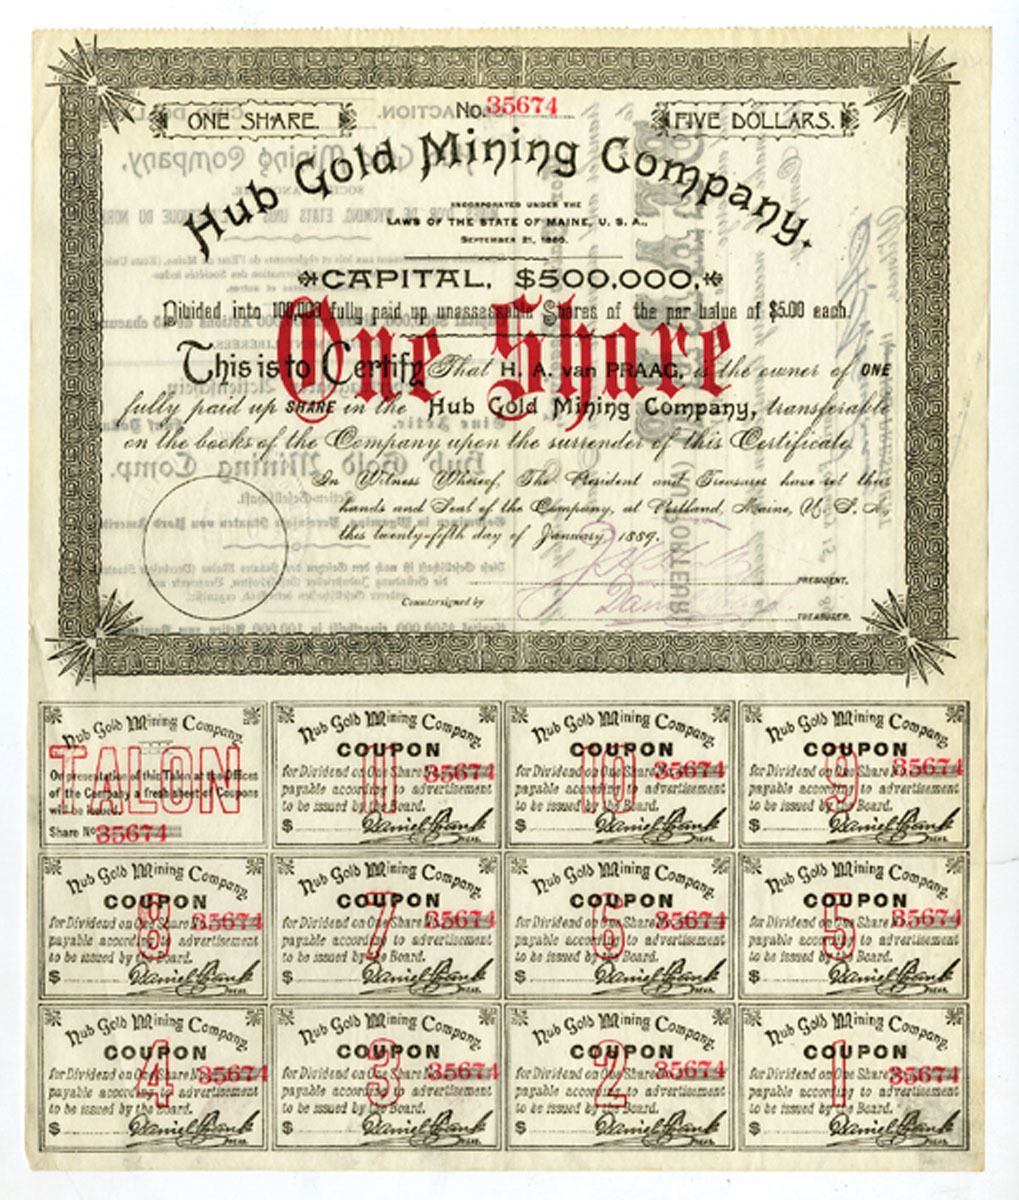 ONE SHARE.
No. 35674
FIVE DOLLARS.
Hub Gold Mining Company.
INCORPORATED UNDER THE
LAWS OF THE STATE OF MAINE, U. S. A.,
SEPTEMBER 21, 1880.
CAPITAL, $500,000,
Divided into 100,000 fully paid up unassessable Shares of the par value of $5.00 each.
One Share
This is to Certify That H. A. van PRAAG, is the owner of ONE
fully paid up SHARE in the Hub Gold Mining Company, transferable
on the books of the Company upon the surrender of this Certificate
In Witness Whereof, The President and Treasurer have set their
hands and Seal of the Company, at Portland, Maine, U. S. A.,
this twenty-fifth day of January 1889.
PRESIDENT.
Countersigned by
TREASURER.
Hub Gold Mining Company.
TALON
On presentation of this Talon at the Offices
of the Company a fresh sheet of Coupons
will be issued.
Share No 35674
Hub Gold Mining Company.
COUPON
11
for Dividend on One Share 35674
payable according to advertisement
to be issued by the Board.
$ Daniel Frank
TREAS.
Hub Gold Mining Company.
COUPON
10
for Dividend on One Share 35674
payable according to advertisement
to be issued by the Board.
$ Daniel Frank
TREAS.
Hub Gold Mining Company.
COUPON
9
for Dividend on One Share No 35674
payable according to advertisement
to be issued by the Board.
$ Daniel Frank
TREAS.
Hub Gold Mining Company.
COUPON
8
for Dividend on One Share 35674
payable according to advertisement
to be issued by the Board.
$ Daniel Frank
TREAS.
Hub Gold Mining Company.
COUPON
7
for Dividend on One Share 35674
payable according to advertisement
to be issued by the Board.
$ Daniel Frank
TREAS.
Hub Gold Mining Company.
COUPON
6
for Dividend on One Share 35674
payable according to advertisement
to be issued by the Board.
$ Daniel Frank
TREAS.
Hub Gold Mining Company.
COUPON
5
for Dividend on One Share 35674
payable according to advertisement
to be issued by the Board.
$ Daniel Frank
TREAS.
Hub Gold Mining Company.
COUPON
4
for Dividend on One Share No 35674
payable according to advertisement
to be issued by the board.
$ Daniel Frank
TREAS.
Hub Gold Mining Company.
COUPON
3
for Dividend on One Share No 35674
payable according to advertisement
to be issued by the Board.
$ Daniel Frank
TREAS.
Hub Gold Mining Company.
COUPON
2
for Dividend on One Share 35674
payable according to advertisement
to be issued by the Board.
$ Daniel Frank
TREAS.
Hub Gold Mining Company.
COUPON
1
for Dividend on One Share No 35674
payable according to advertisement
to be issued by the Board.
$ Daniel Frank
TREAS.